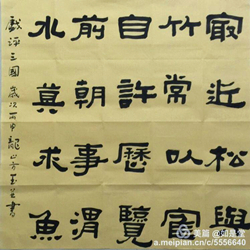 㝡近松與
竹常以
自許歷覽
前朝事渭
水莫求魚
戲評三國 歲次丙申 龍山
書
美篇
a.meipian.cn/c/5556640